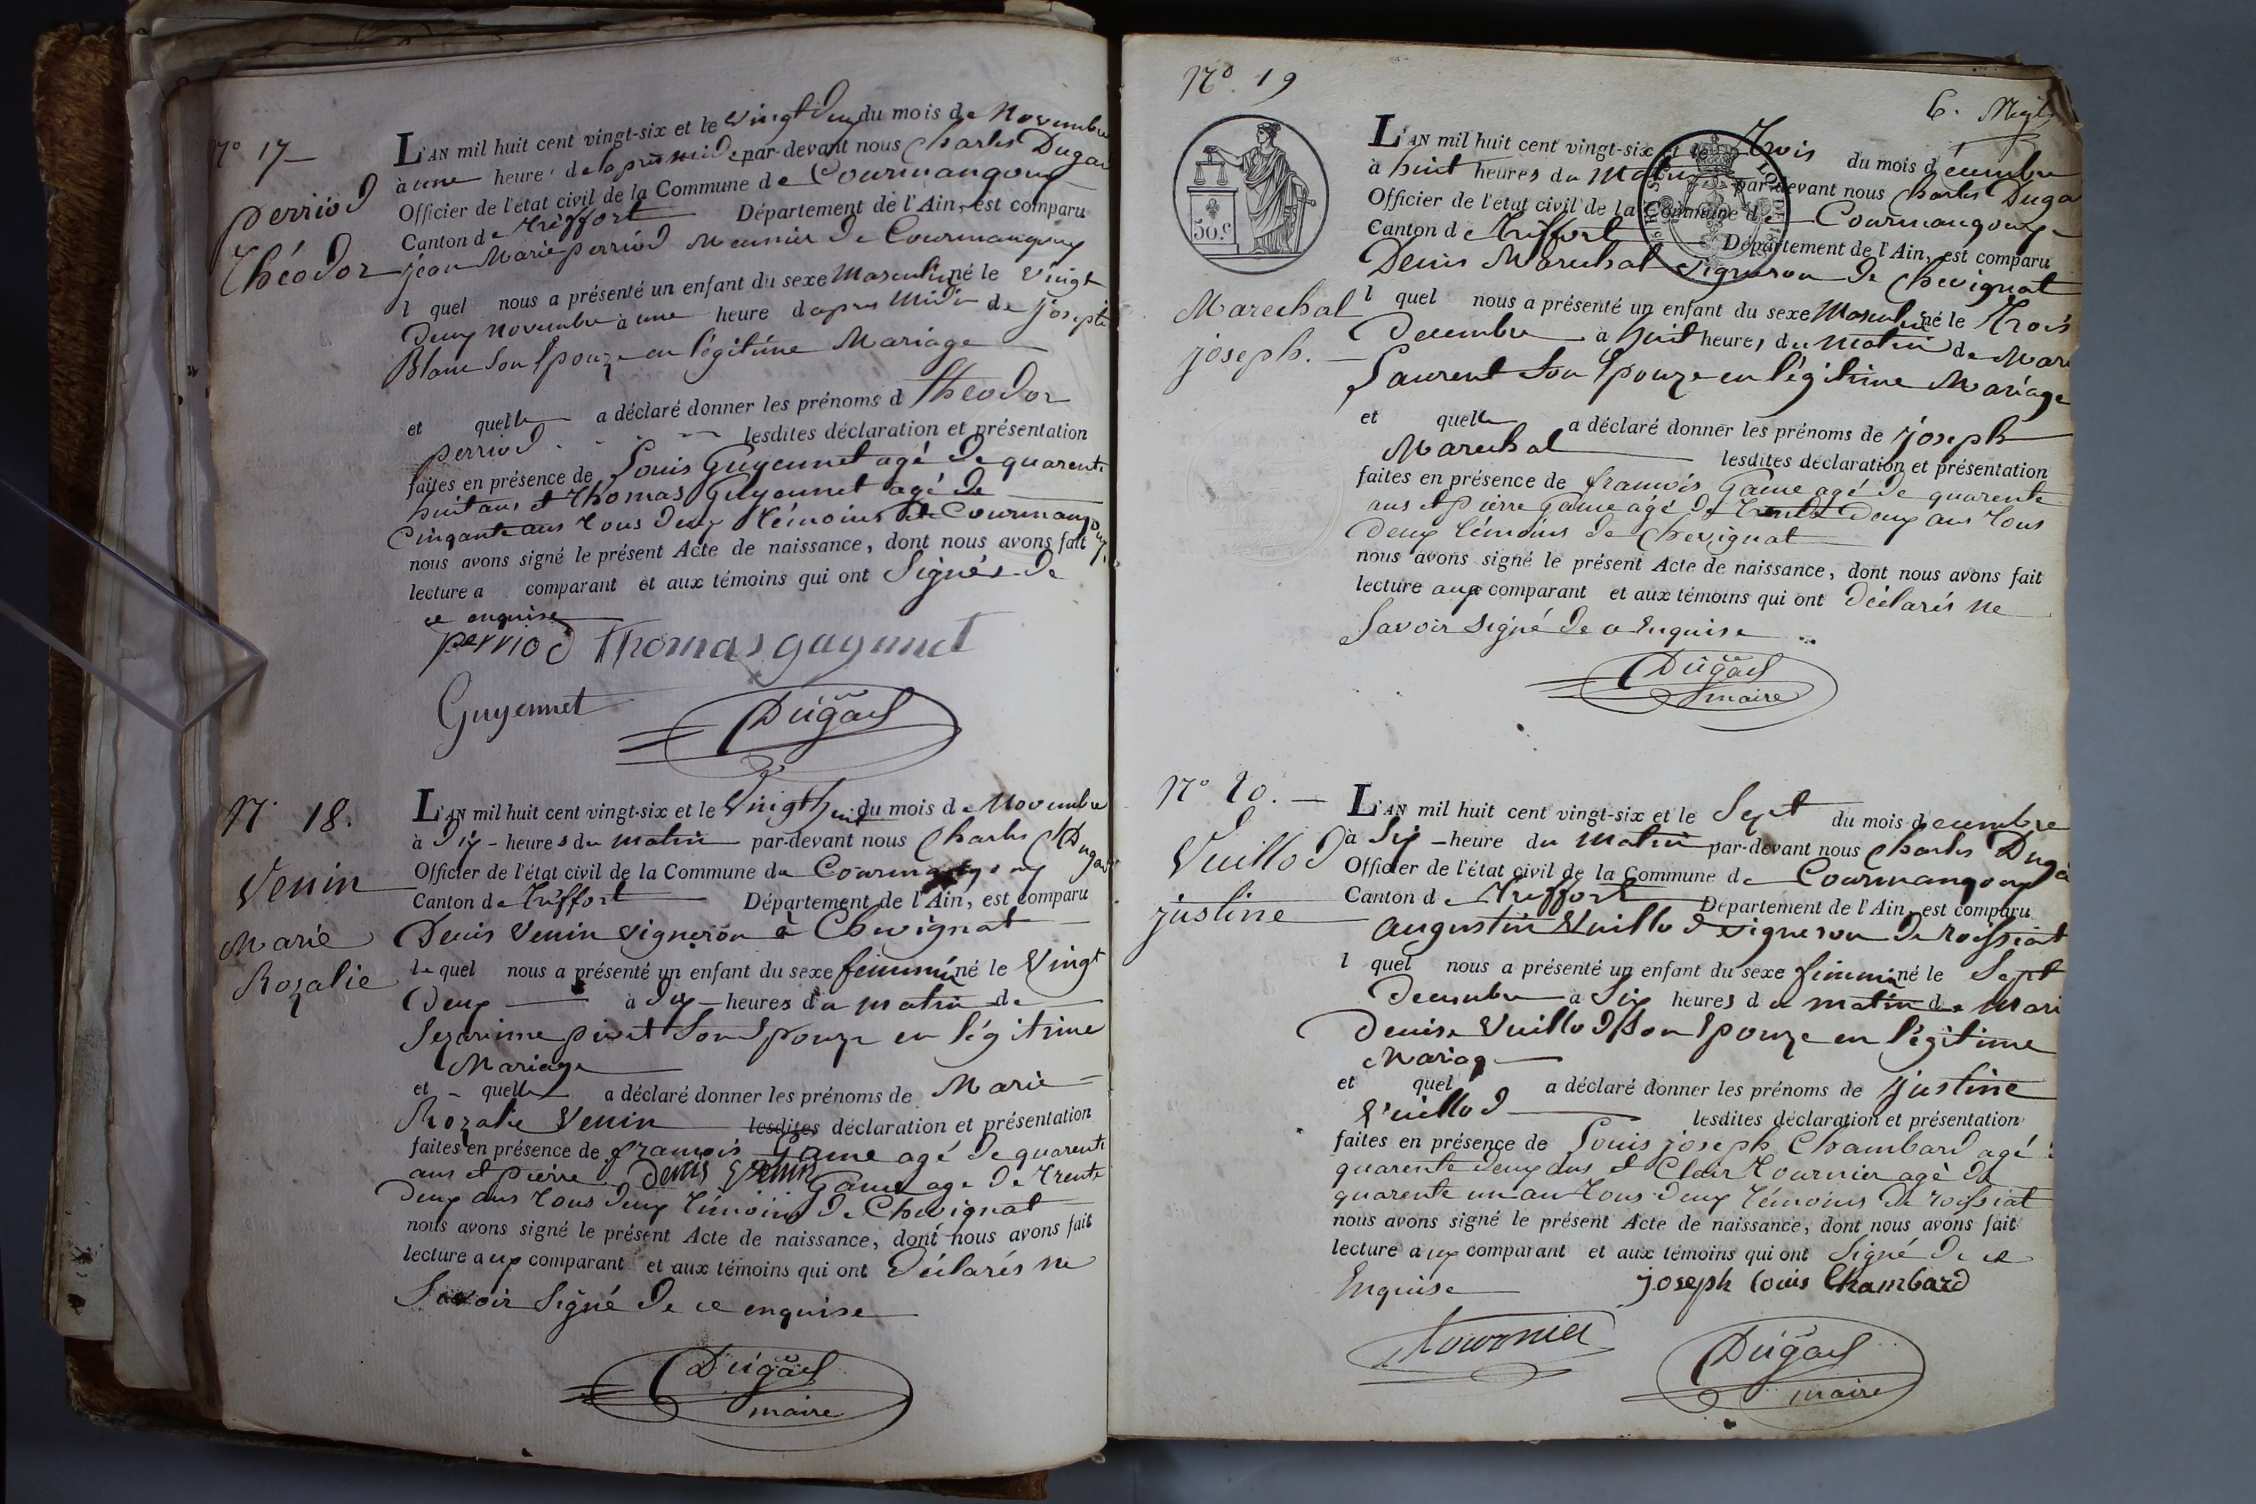 N° 17
perriod
théodor
L'AN mil huit cent vingt-six et le vingt deux du mois de Novembre
à une heure de lapres midi par-devant nous Charles Dugad
Officier de l'état civil de la Commune de Courmangoux
Canton de Treffort Département de l'Ain, est comparu
jean Marie perriod Meunier de Courmangoux
l quel nous a présenté un enfant du sexe Masculin né le vingt
deux novembre à une heure d apres Midi de josephte
Blanc Son Epouze en légitime Mariage
et quelle a déclaré donner les prénoms d theodor
perriod lesdites déclaration et présentation
faites en présence de Louis Guyennet agé de quarente
huit ans et thomas Guyennet agé de
Cinqante ans tous deux témoins de Courmangoux
nous avons signé le présent Acte de naissance, dont nous avons fait
lecture a comparant et aux témoins qui ont Signés de
ce enquise
perriod thomas guyennet
Guyennet Dugad
N° 18.
Venin
Marie
Rozalie
L'AN mil huit cent vingt-six et le Vingt huit du mois de Novembre
à dix heures du matin par-devant nous Charles Dugad
Officier de l'état civil de la Commune de Courmangoux
Canton de Treffort Département de l'Ain, est comparu
Denis Venin vigneron à Chevignat
le quel nous a présenté un enfant du sexe feminin né le Vingt
Deux à dix heures du matin de
son Epouze en légitime
Mariage
et quelle a déclaré donner les prénoms de Marie
Rozalie Venin lesdites déclaration et présentation
faites en présence de François Game agé de quarente
ans et pierre denis Venin Game age de trente
deux ans tous deux témoins de Chevignat
nous avons signé le présent Acte de naissance, dont nous avons fait
lecture aux comparant et aux témoins qui ont déclarés ne
Savoir Signé de ce enquise
Dugad
maire
N° 19
6.
50.c
Marechal
joseph.
L'AN mil huit cent vingt-six et le Trois du mois décembre
à huit heures du Matin par-devant nous Charles Duga
Officier de l'état civil de la Commune de Courmangoux
Canton d Treffort Département de l'Ain, est comparu
Denis Marechal vigneron de Chevignat
l quel nous a présenté un enfant du sexe Masculin né le Trois
Decembre à huit heures du matin de Mari
Laurent Son Epouze en légitime Mariage
et quelle a déclaré donner les prénoms de joseph
Marechal lesdites déclaration et présentation
faites en présence de francois Game agé de quarente
ans et pierre Game agé de trente deux ans tous
deux témoins de Chevignat
nous avons signé le présent Acte de naissance, dont nous avons fait
lecture aux comparant et aux témoins qui ont déclarés ne
Savoir signé de ce Enquise
Dugad
maire
N° 20.
Vuillod
justine
L'AN mil huit cent vingt-six et le Sept du mois decembre
à Six heure du matin par-devant nous Charles Duga
Officier de l'état civil de la Commune de Courmangoux
Canton d Treffort Département de l'Ain, est comparu
augustin Vuillod vigneron de roissiat
l quel nous a présenté un enfant du sexe feminin né le Sept
Decembre à Six heures du matin de Mari
Denise Vuillod son Epouze en légitime
Mariag
et quel a déclaré donner les prénoms de justine
Vuillod lesdites déclaration et présentation
faites en présence de Louis joseph Chambard agé
quarente deux ans et Clair tournier agé de
quarente un an tous deux témoins de roissiat
nous avons signé le présent Acte de naissance, dont nous avons fait
lecture aux comparant et aux témoins qui ont Signé de ce
Enquise joseph louis Chambard
tournier Dugad
maire